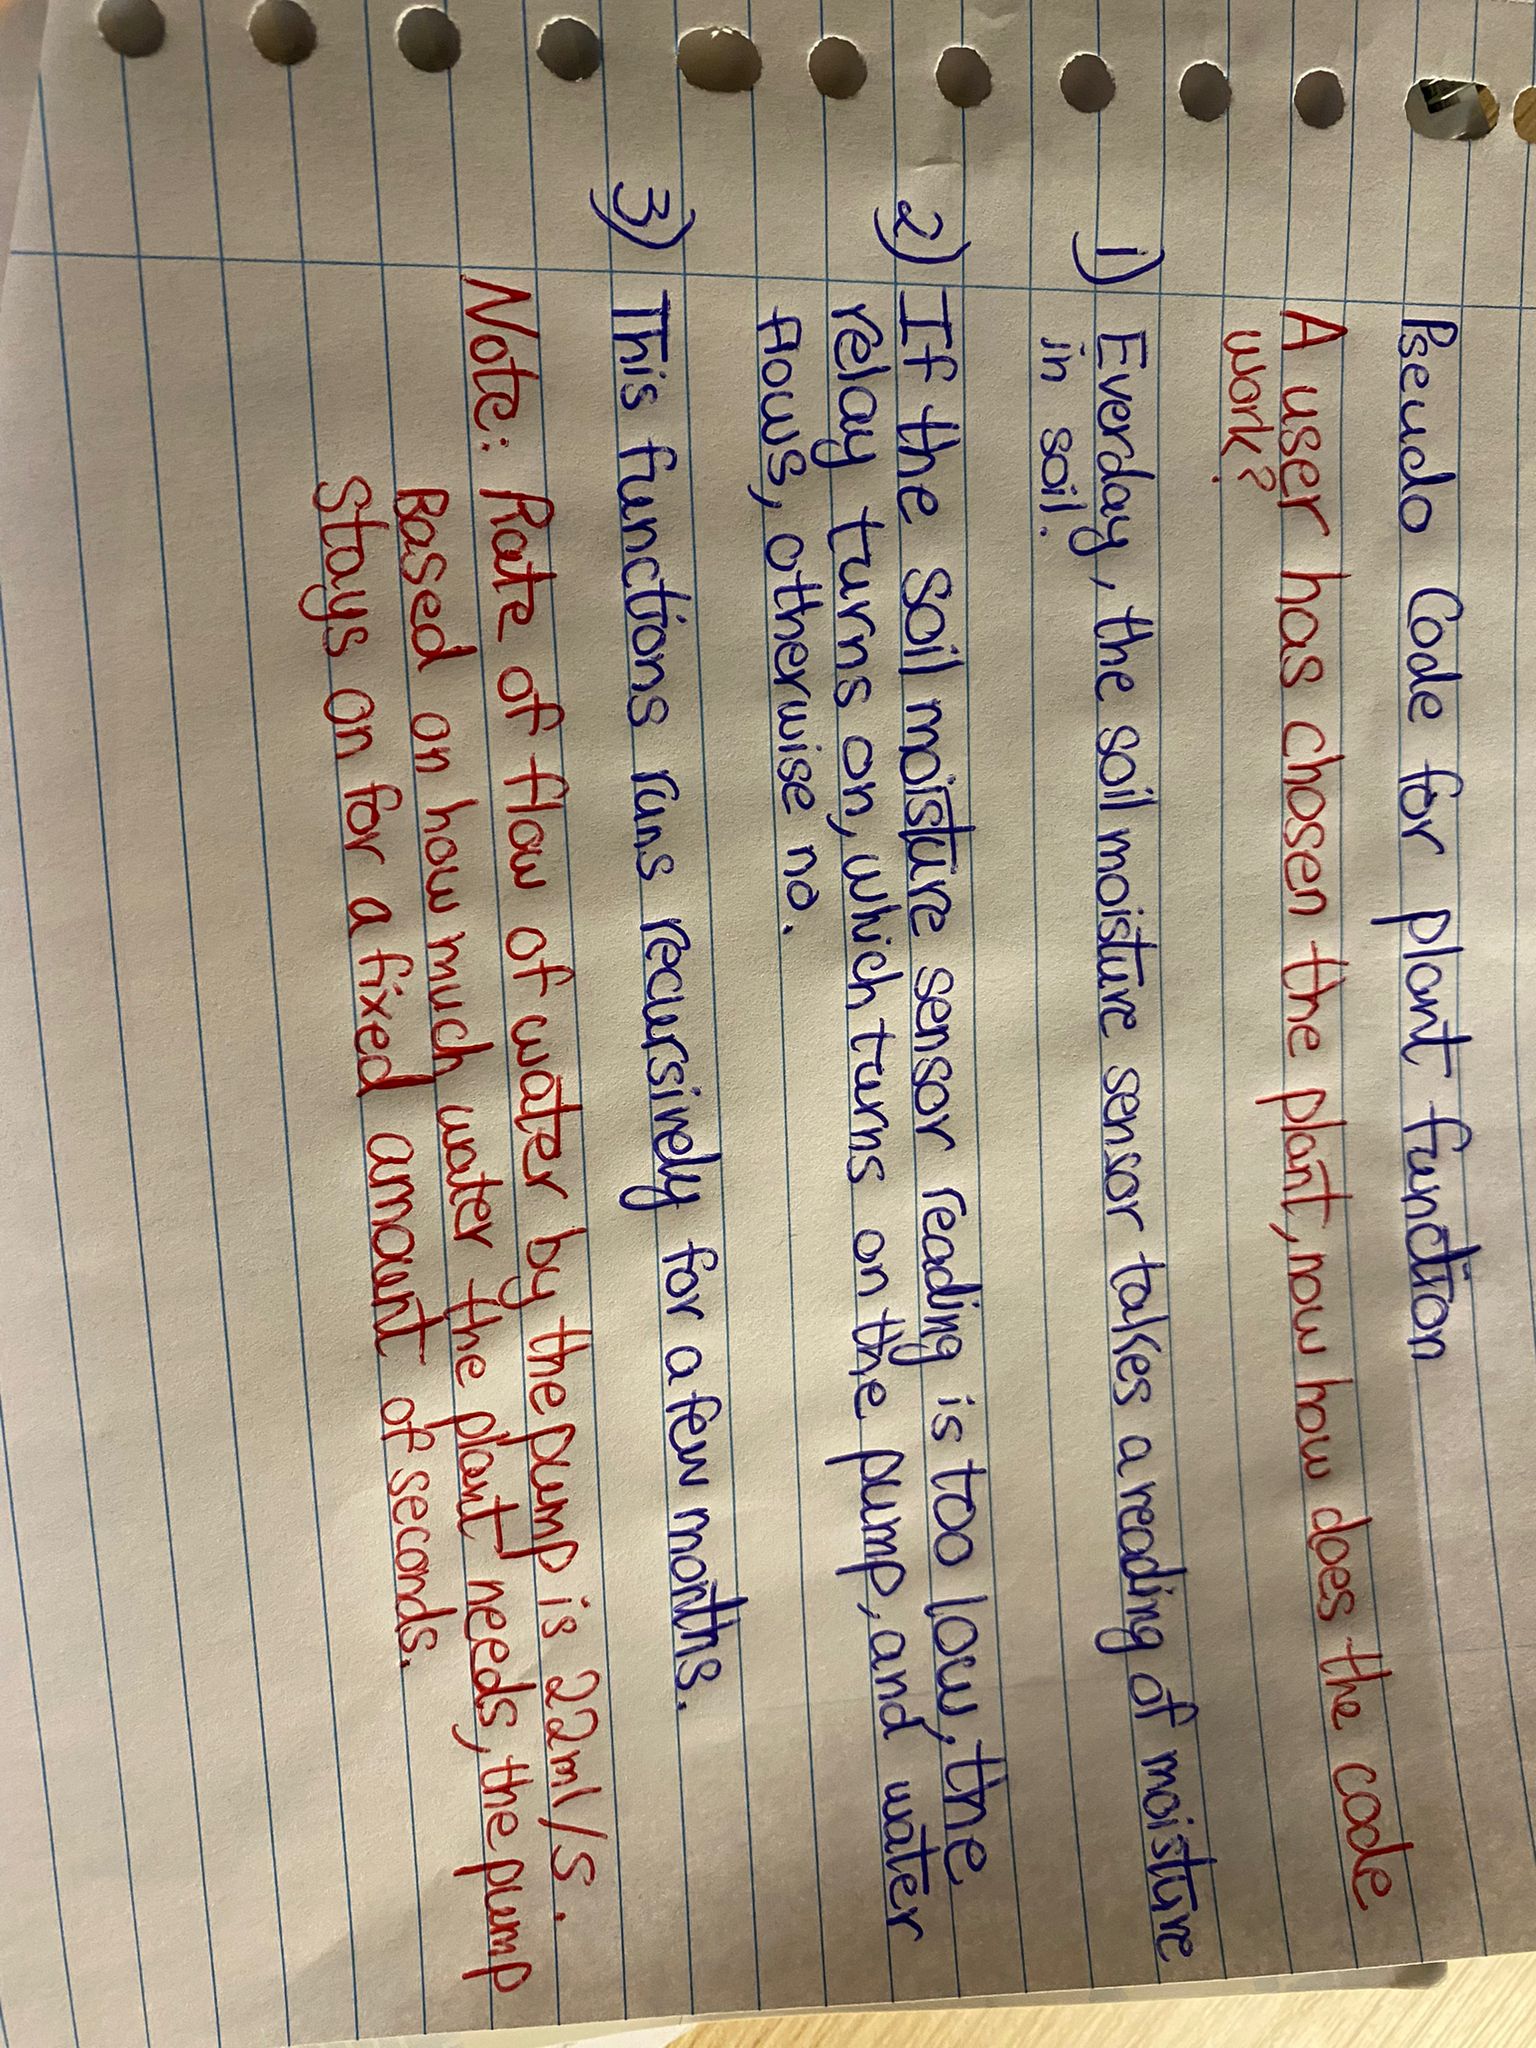 Pseudo Code for plant function
A user has chosen the plant, now how does the code
work?
1) Everday, the soil moisture sensor takes a reading of moisture
in soil.
2) If the soil moisture sensor reading is too low, the
relay turns on, which turns on the pump, and water
flows, otherwise no.
3) This functions runs recursively for a few months.
Note: Rate of flow of water by the pump is 22ml/s.
Based on how much water the plant needs, the pump
stays on for a fixed amount of seconds.